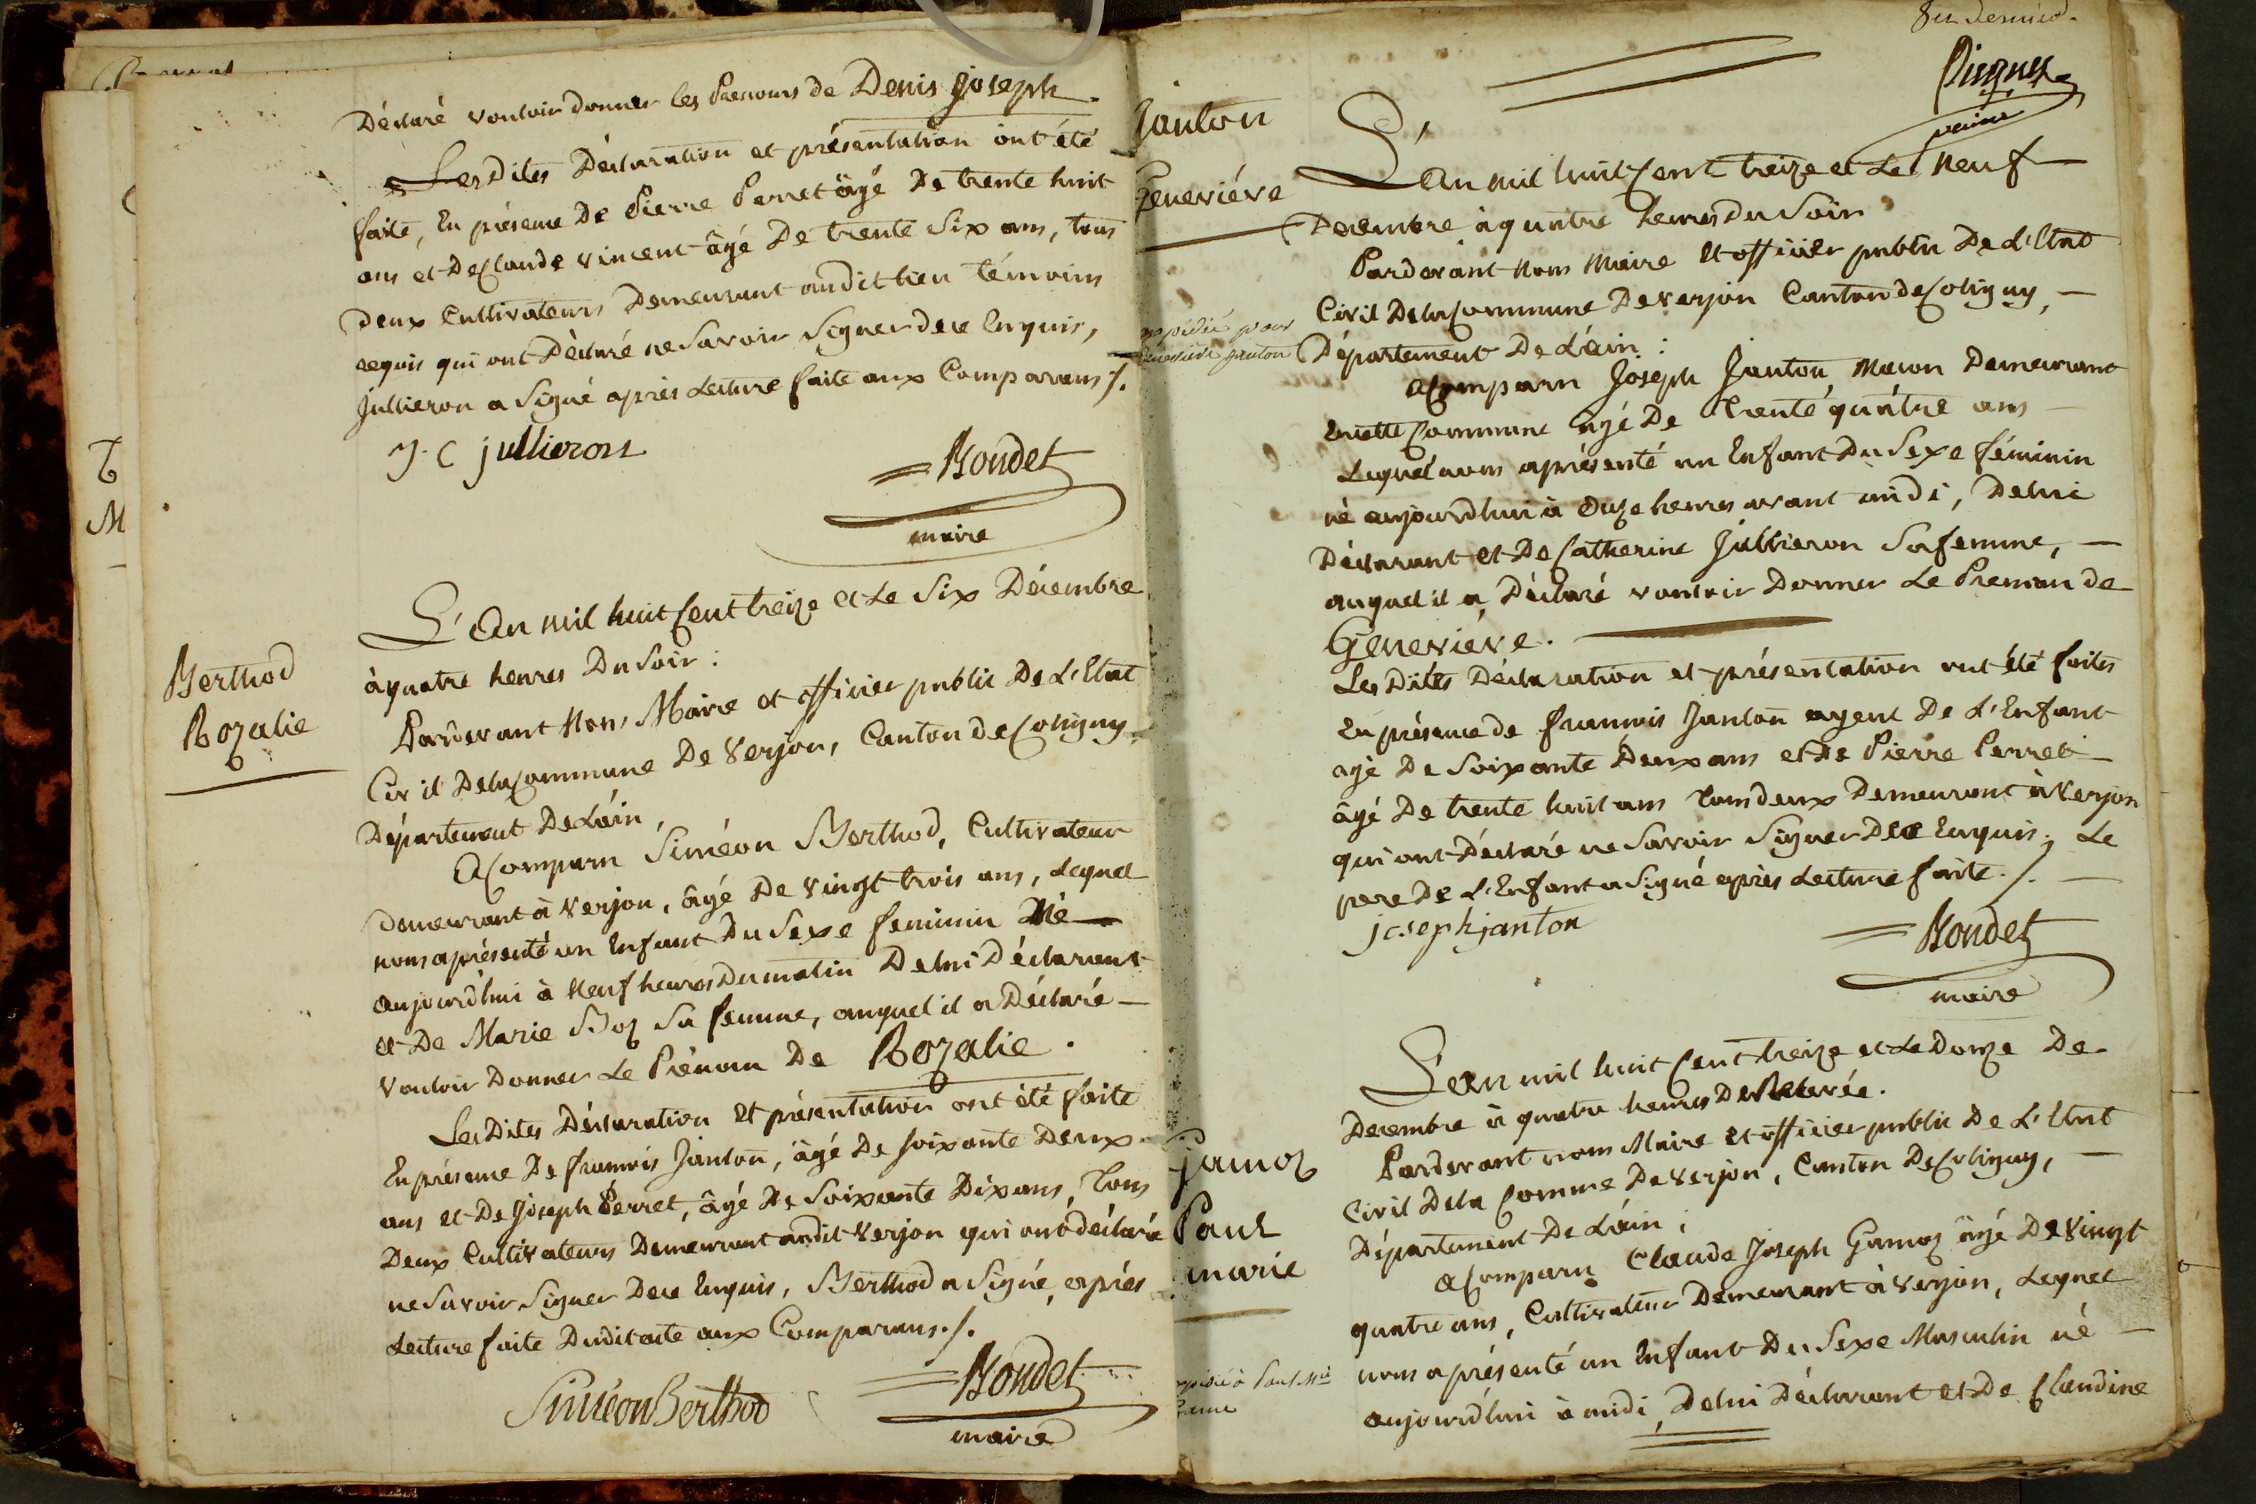 Déclaré vouloir donner les Prenoms de Denis Joseph
Les Dites Déclaration et présentation ont été
faite, En présence De Pierre Perret âgé De trente huit
ans et De Claude Vincent âgé De trente Six ans, tous
deux Cultivateurs Demeurant audit lieu témoins
requis qui ont Déclaré ne Savoir Signer de ce Enquis,
Jullieron a Signé après Lecture faite aux Comparans ./.
J. C jullieron
Boudet
maire
Berthod
Rozalie
L'An mil huit Cent treize et Le Six Décembre
à quatre heures Du Soir :
Pardevant Nous Maire et officier public De L'Etat
Civil De la Commune De Verjon, Canton de Coligny
Département De L'ain,
A Comparu Siméon Berthod, Cultivateur
Demeurant à Verjon, âgé De vingt trois ans, Lequel
nous a présenté un Enfant Du Sexe feminin Né
aujourd'hui à Neuf heures Du matin De lui Déclarant
et De Marie Boz Sa femme, auquel il a Déclaré
vouloir Donner Le Prénom De Rozalie .
Les Dites Déclaration Et présentation ont été faite
En présence De francois Janton, âgé De Soixante Deux
ans et De Joseph Perret, âgé De Soixante Dix ans, tous
Deux Cultivateurs Demeurant audit Verjon qui ont déclaré
ne Savoir Signer De ce Enquis, Berthod a Signé, après
Lecture faite Dudit acte aux Comparans ./.
Siméon Berthod
Boudet
maire
Janton
Geneviéve
expédié pour
Geneviéve janton
L'An mil huit Cent treize et Le Neuf
Decembre à quatre heures du Soir
Pardevant Nous Maire Et officier public De L'Etat
Civil De la Commune De Verjon Canton de Coligny,
Département De L'ain :
A Comparu Joseph Janton, Macon Demeurant
En cette Commune âgé De trente quatre ans
Lequel nous a présenté un Enfant Du Sexe féminin
né aujourd'hui à Onze heures avant midi, De lui
Déclarant et De Catherine Jullieron Sa femme,
auquel il a Déclaré vouloir Donner Le Prenom de
Geneviéve.
Les Dites Déclaration et présentation ont été faites
En présence de francois Janton ayeul De L'Enfant
agé De Soixante Deux ans et De Pierre Perret
âgé De trente huit ans tous deux Demeurant à Verjon
qui ont Déclaré ne Savoir Signer De ce Enquis ; Le
pere De L'Enfant a Signé après Lecture faite ./.
joseph janton
Boudet
maire
jamoz
Paul
marie
L'an mil huit Cent treize et Le Douze De
Decembre à quatre heures De Relevée.
Pardevant nous Maire Et officier public De L'Etat
Civil De la Comme De Verjon, Canton De Coligny,
Département De L'ain ;
A Comparu Claude Joseph Gamoz âgé De Vingt
quatre ans, Cultivateur Demeurant à Verjon, Lequel
nous a présenté un Enfant Du Sexe Masculin né
aujourd'hui à midi, De lui Déclarant et De Claudine